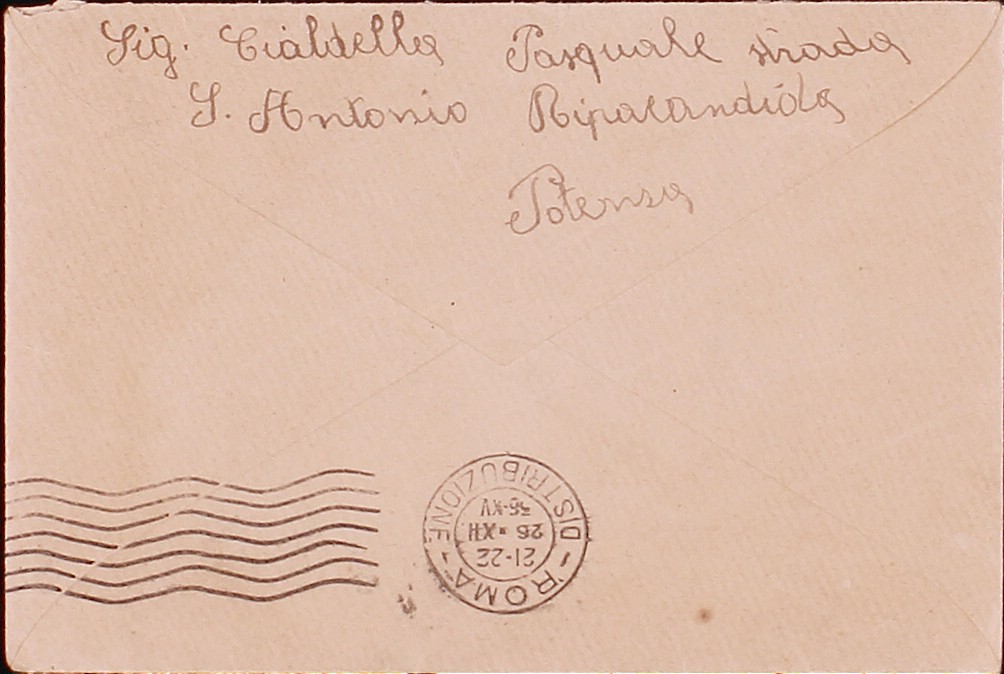 Sig. Cialdella Pasquale strada
S. Antonio Ripacandida
Potenza
ROMA - DISTRIBUZIONE -
21-22
26 • XII
36-XV